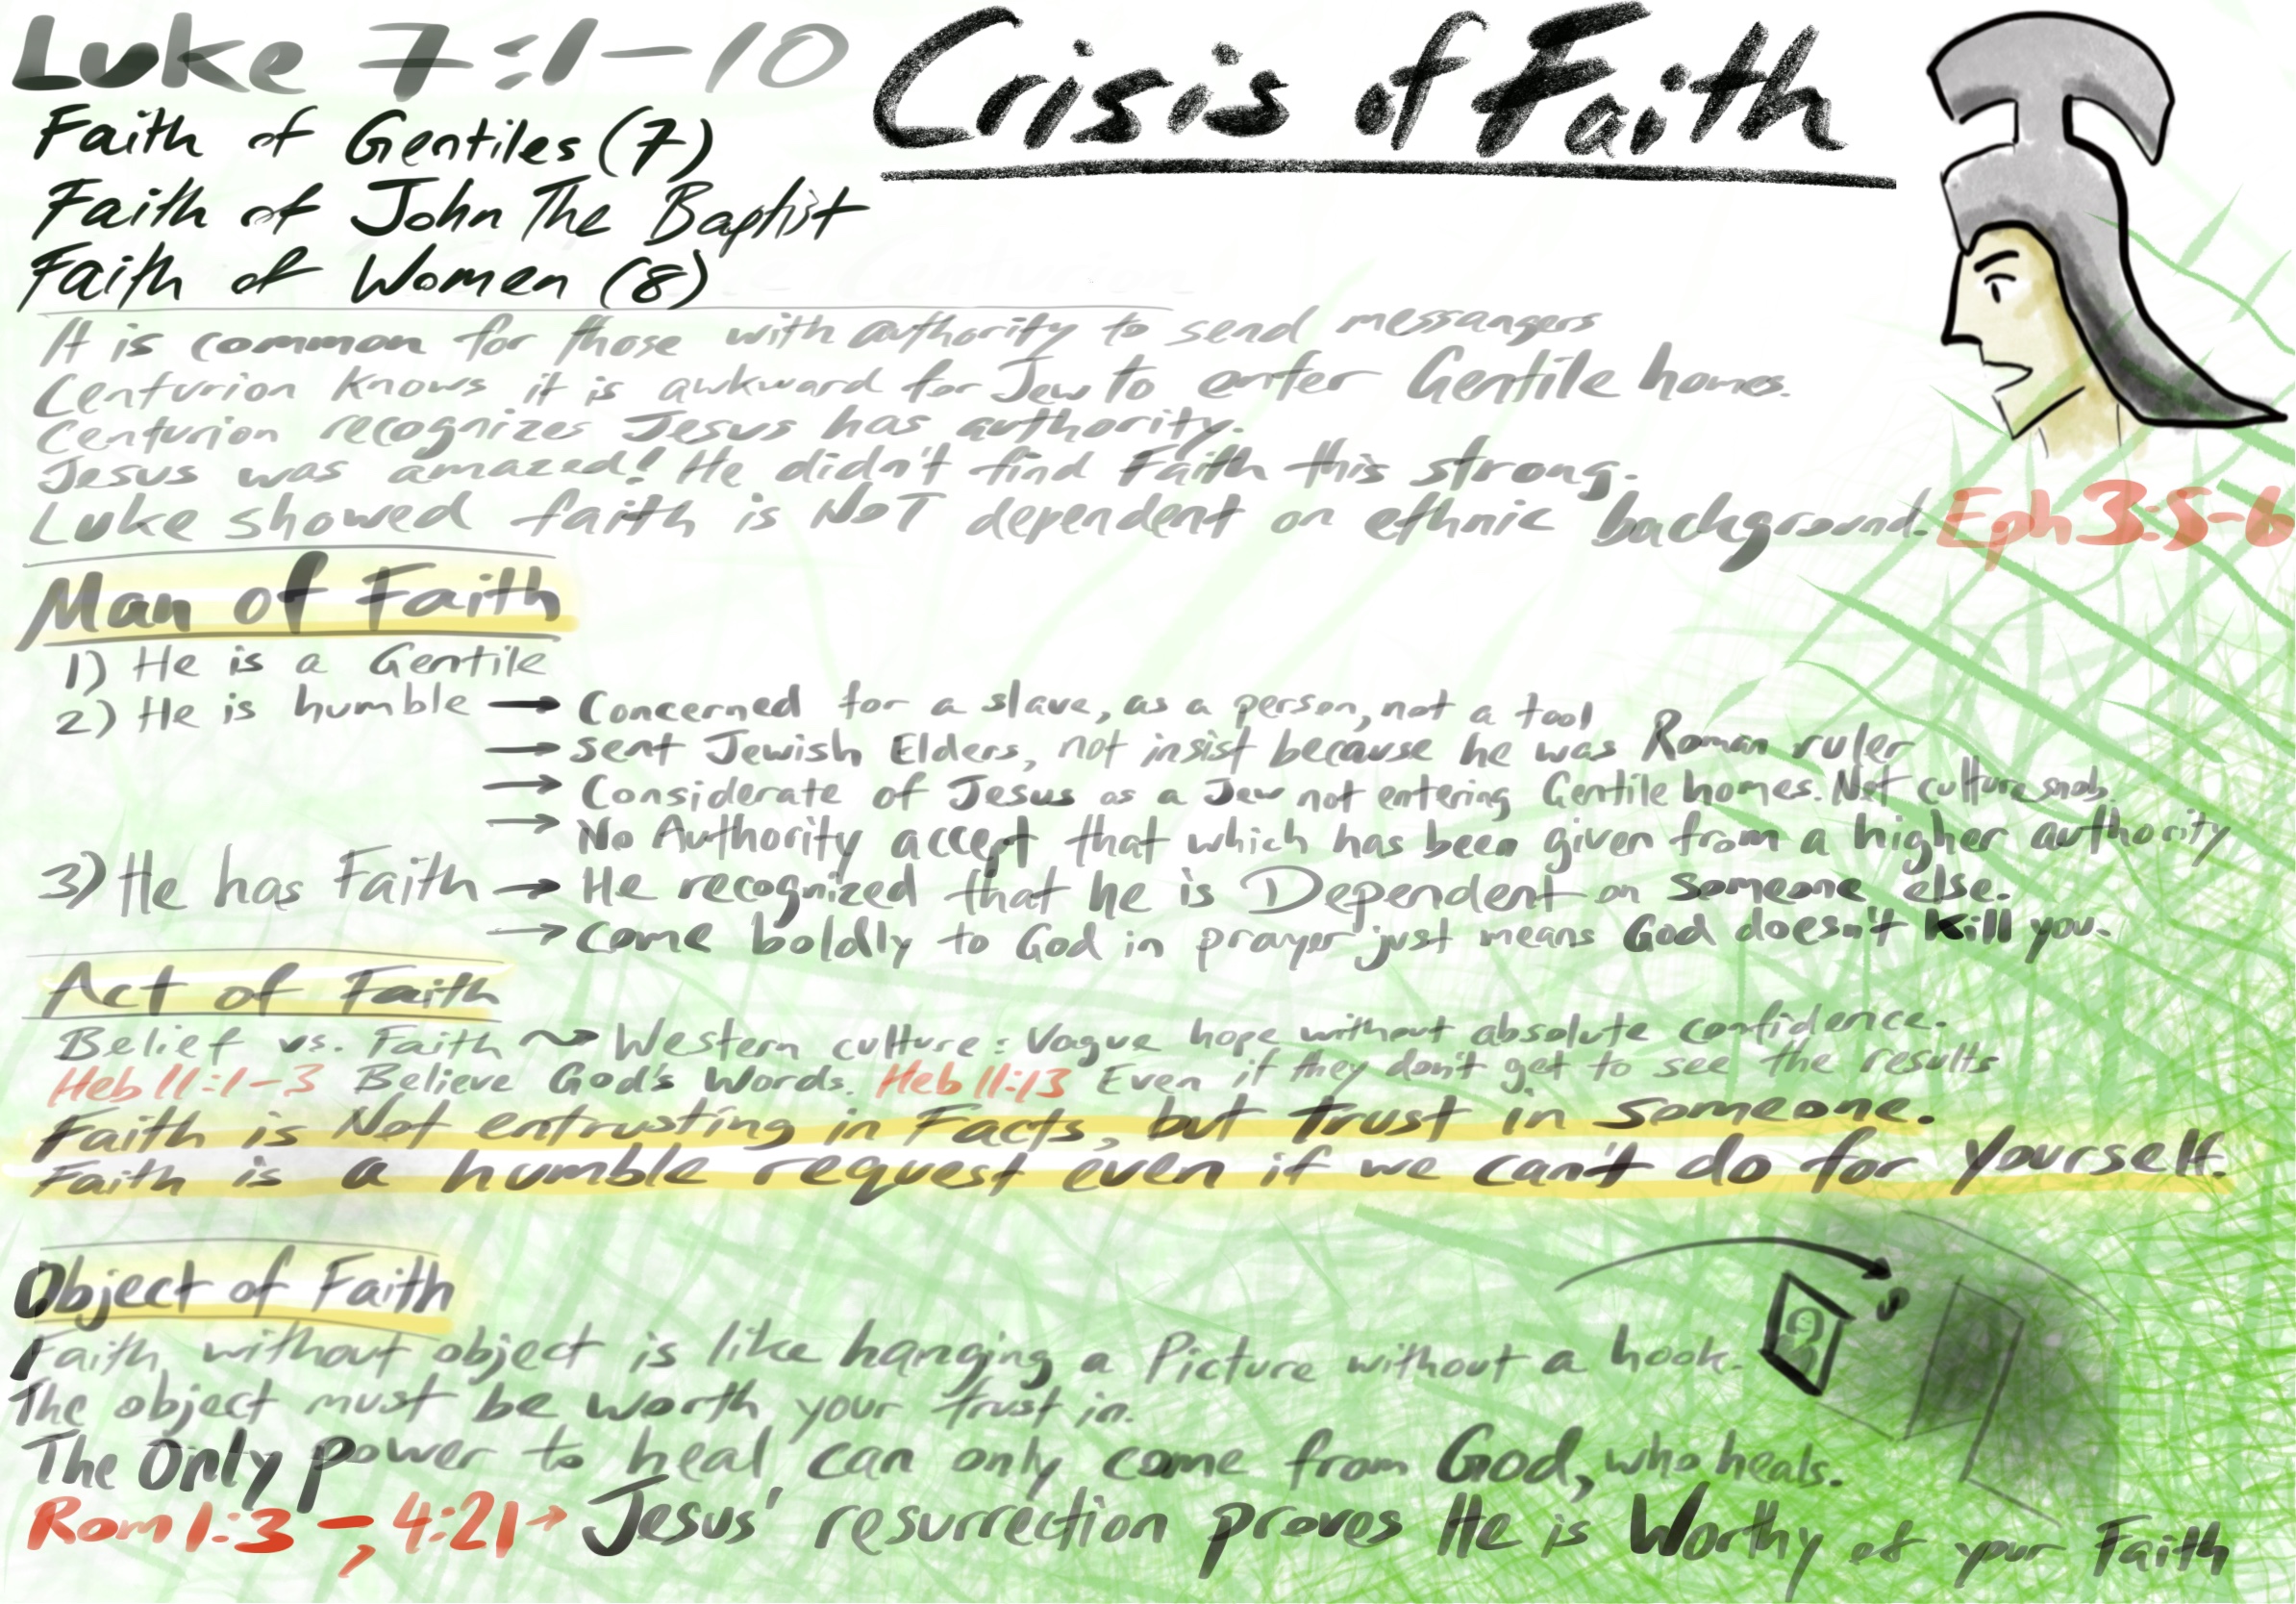 Luke 7:1-10
Crisis of Faith
Faith of Gentiles (7)
Faith of John The Baptist
Faith of Women (8)
It is common for those with authority to send messangers
Centurion knows it is awkward for Jew to enter Gentile homes.
Centurion recognizes Jesus has authority.
Jesus was amazed! He didn't find Faith this strong.
Luke showed faith is NOT dependent on ethnic background. Eph 3:5-6
Man of Faith
1) He is a Gentile
2) He is humble → Concerned for a slave, as a person, not a tool
→ sent Jewish Elders, not insist because he was Roman ruler
→ Considerate of Jesus as a Jew not entering Gentile homes. Not culture snob.
→ No Authority accept that which has been given from a higher authority
3) He has Faith → He recognized that he is Dependent on someone else.
→ Come boldly to God in prayer just means God doesn't kill you.
Act of Faith
Belief vs. Faith ~> Western culture: Vague hope without absolute confidence.
Heb 11:1-3 Believe God's Words. Heb 11:13 Even if they don't get to see the results
Faith is Not entrusting in Facts, but Trust in someone.
Faith is a humble request even if we can't do for yourself.
Object of Faith
Faith without object is like hanging a Picture without a hook.
The object must be worth your trust in.
The Only Power to heal can only come from God, who heals.
Rom 1:3-, 4:21 → Jesus' resurrection proves He is Worthy of your Faith